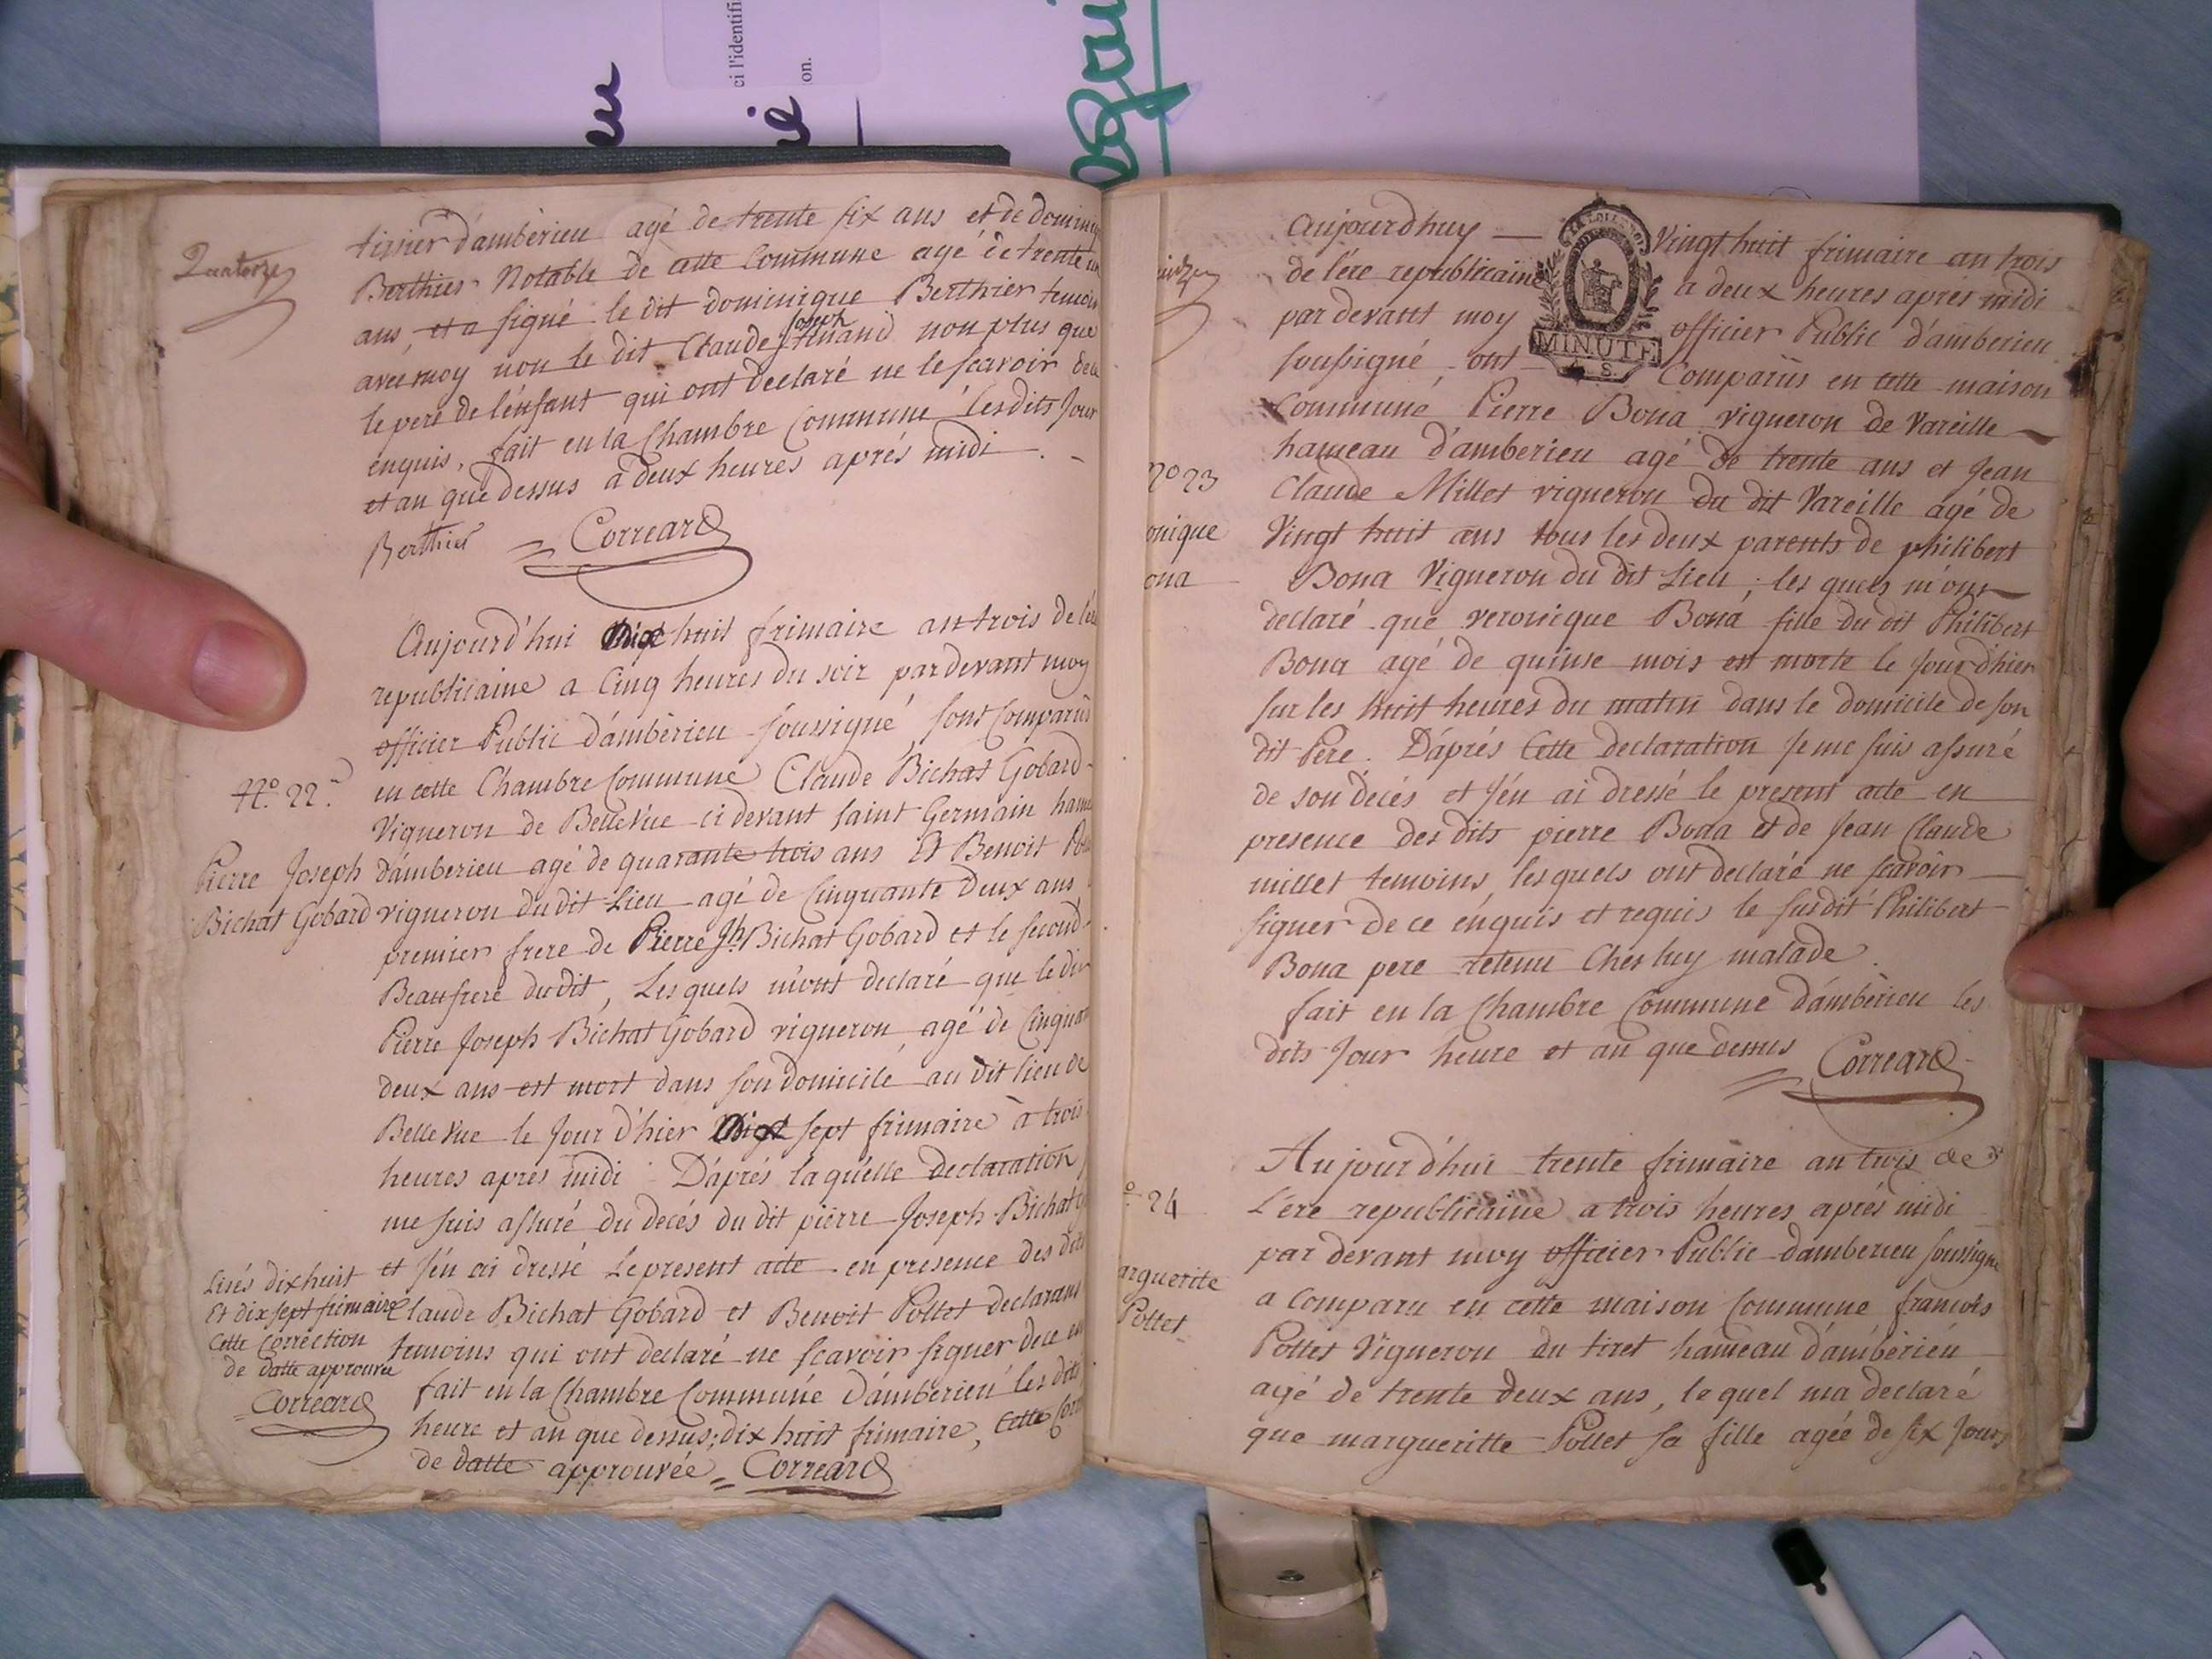 ci l'identifi
on.
Quatorze
tissier d'amberieu agé de trente six ans et de dominiq
Berthier Notable de cette Commune agé de trente un
ans, et a signé le dit dominique Berthier temoin
avec moy non le dit Claude joseph non plus que
le pere de l'enfant qui ont declaré ne le scavoir de ce
enquis, fait en la Chambre Commune lesdits Jour
et an que dessus a deux heures aprés midi. -
Berthier Correard
Aujourd'hui dix huit frimaire an trois de l'ére
republicaine a Cinq heures du soir par devant moy
officier Public d'ambérieu soussigné, sont Comparus
N.º 22.
en cette Chambre Commune Claude Bichat Gobard
Vigneron de Bellevue ci devant saint Germain hame
Pierre Joseph
Bichat Gobard
d'amberieu agé de quarante trois ans Et Benoit Po
vigneron du dit Lieu agé de Cinquante Deux ans
premier frere de Pierre Jh. Bichat Gobard et le second
Beaufrere du dit, Les quels m'ont declaré que le dit
Pierre Joseph Bichat Gobard vigneron, agé de Cinquan
deux ans est mort dans son domicile au dit lieu de
Belle Vue le Jour d'hier dix sept frimaire à trois
heures aprés midi. D'aprés laquelle declaration
me suis assuré du decés du dit pierre Joseph Bichat
et j'en ai dressé le present acte en presence des dits
Claude Bichat Gobard et Benoit Pollet declarans
temoins qui ont declaré ne scavoir signer de ce en
fait en la Chambre Commune D'amberieu les dits
heure et an que dessus; dix huit frimaire, Cette Corre
de datte approuvée Correard
Lisés dixhuit
Et dix sept frimaire
Cette Correction
de datte approuvée
Correard
MINUTE
Aujourdhuy — Vingt huit frimaire an trois
de l'ére republicaine a deux heures aprés midi
par devant moy officier Public d'amberieu
soussigné, ont Comparüs en cette maison
Commune, Pierre Bona vigneron de Vareille
hameau d'amberieu agé de trente ans et Jean
nº 23
onique
ona
Claude Millet vigneron du dit Vareille agé de
Vingt huit ans tous les deux parents de philibert
Bona Vigneron du dit Lieu, les quels m'ont
declaré que veronique Bona, fille du dit Philibert
Bona agé de quinse mois est morte le Jour d'hier
sur les huit heures du matin dans le domicile de son
dit Pere. D'aprés Cette declaration Je me suis assuré
de son decés et j'en ai dressé le present acte en
presence des dits pierre Bona et de Jean Claude
millet temoins, les quels ont declaré ne scavoir
signer de ce enquis et requis le susdit Philibert
Bona pere retenu Ches luy malade.
fait en la Chambre Commune d'ambérieu les
dits Jour heure et an que dessus Correard
Aujourd'hui trente frimaire an trois de
º 24
L'ére republicaine a trois heures aprés midi
par devant moy officier Public d'amberieu soussigné
arguerite
Pollet
a Comparu en cette maison Commune francois
Pollet Vigneron du tiret hameau d'ambérieu
agé de trente deux ans, le quel m'a declaré
que margueritte Pollet sa fille agée de six Jours